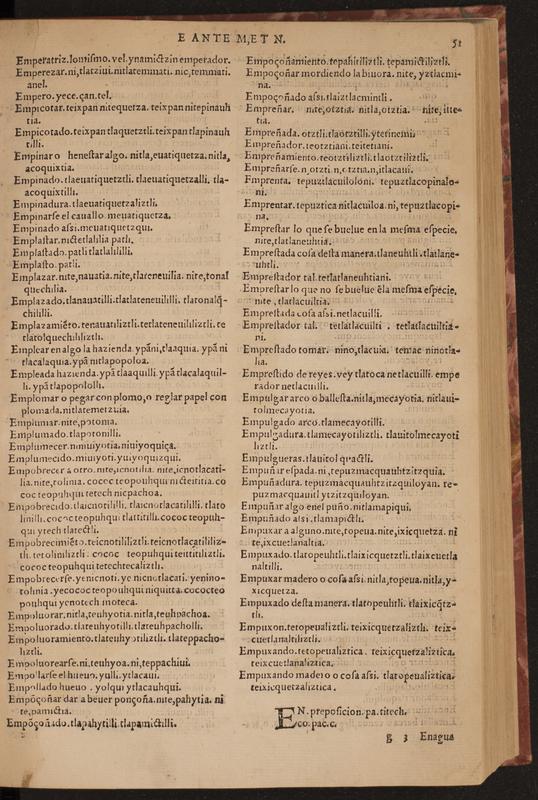 E ANTE M, ET N.
51
Emperatriz. lomismo. vel. ynamictzin emperador.
Emperezar. ni, tlatziui. nitlatemmati. nic, temmati.
anel.
Empero. yece. çan. tel.
Empicotar. teixpan nitequetza. teixpan nitepinauh
tia.
Empicotado. teixpan tlaquetztli. teixpan tlapinauh
tilli.
Empinar o henestar algo. nitla, euatiquetza. nitla,
acoquixtia.
Empinado. tlaeuatiquetztli. tlaeuatiquetzalli. tla-
acoquixtilli.
Empinadura. tlaeuatiquetzaliztli.
Empinarse el cauallo. meuatiquetza.
Empinado assi. meuatiquetzqui.
Emplastar. nictetlalilia patli.
Emplastado. patli tlatlalililli.
Emplasto. patli.
Emplazar. nite, nauatia. nite, tlateneuilia. nite, tonal
quechilia.
Emplazado. tlanauatilli. tlatlateneuililli. tlatonalq̃-
chililli.
Emplazamiẽto. tenauatiliztli. tetlateneuililiztli. te
tlatolquechiliztli.
Emplear en algo la hazienda. ypãni, tlaaquia. ypã ni
tlacalaquia. ypã nitlapopoloa.
Empleada hazienda. ypã tlaaquilli. ypã tlacalaquil-
li. ypã tlapopololli.
Emplomar o pegar con plomo, o reglar papel con
plomada. nitlatemetzuia.
Emplumar. nite, potonia.
Emplumado. tlapotonilli.
Emplumecer. nimiuiyotia. niuiyoquiça.
Emplumecido. miuiyoti. yuiyoquizqui.
Empobrecer a otro. nite, icnotilia. nite, icnotlacati-
lia. nite, tolinia. cococ teopouhqui nictetitia. co
coc teopouhqui tetech nicpachoa.
Empobrecido. tlaicnotililli. tlaicnotlacatililli. tlato
linilli. cococ teopouhqui tlattitilli. cococ teopuh-
qui ytech tlatectli.
Empobrecimiẽto. teicnotililiztli. teicnotlacatililiz-
tli. tetoliniliztli. cococ teopuhqui teittitiliztli.
cococ teopouhqui tetechtecaliztli.
Empobrecerse. ye nicnoti. ye nicnotlacati. yenino-
tolinia. yecococ teopouhqui niquitta. cococteo
pouhqui yenotech moteca.
Empoluorar. nitla, teuhyotia. nitla, teuhpachoa.
Empoluorado. tlateuhyotilli. tlateuhpacholli.
Empoluoramiento. tlateuhyotiliztli. tlateppacho-
liztli.
Empoluorearse. ni, teuhyoa. ni, teppachiui.
Empollarse el hueuo. yulli. ytlacaui.
Empollado hueuo. yolqui ytlacauhqui.
Empõçoñar dar a beuer ponçoña. nite, pahytia. ni
te, pamictia.
Empõçoñado. tlapahytilli. tlapamictilli.
Empoçoñamiento. tepahitiliztli. tepamictiliztli.
Empoçoñar mordiendo la biuora. nite, yztlacmi-
na.
Empoçoñado assi. tlaiztlacmintli.
Empreñar. nite, otztia. nitla, otztia. nite, itte-
tia.
Empreñada. otztli. tlaotztilli. ytetinemi.
Empreñador. teotztiani. teitetiani.
Empreñamiento. teotztiliztli. tlaotztiliztli.
Empreñarse. n, otzti. n, otztia. n, itlacaui.
Emprenta. tepuztlacuiloloni. tepuztlacopinalo-
ni.
Emprentar. tepuztica nitlacuiloa. ni, tepuztlacopi-
na.
Emprestar lo que se buelue en la mesma especie.
nite, tlatlaneuhtia.
Emprestada cosa desta manera. tlaneuhtli. tlatlane-
uhtli.
Emprestador tal. tetlatlaneuhtiani.
Emprestar lo que no se buelue ẽla mesma especie.
nite, tlatlacuiltia.
Emprestada cosa assi. netlacuilli.
Emprestador tal. tetlatlacuilti. tetlatlacuiltia-
ni.
Emprestado tomar. nino, tlacuia. temac ninotla-
lia.
Emprestido de reyes. vey tlatoca netlacuilli. empe
rador netlacuilli.
Empulgar arco o ballesta. nitla, mecayotia. nitlaui-
tolmecayotia.
Empulgado arco. tlamecayotilli.
Empulgadura. tlamecayotiliztli. tlauitolmecayoti
liztli.
Empulgueras. tlauitol quactli.
Empuñar espada. ni, tepuzmacquauhtzitzquia.
Empuñadura. tepuzmacquauhtzitzquiloyan. te-
puzmacquauitl ytzitzquiloyan.
Empuñar algo enel puño. nitlamapiqui.
Empuñado assi. tlamapictli.
Empuxar a alguno. nite, topeua. nite, ixicquetza. ni
te, ixcuetlanaltia.
Empuxado. tlatopeuhtli. tlaixicquetztli. tlaixcuetla
naltilli.
Empuxar madero o cosa assi. nitla, topeua. nitla, y-
xicquetza.
Empuxado desta manera. tlatopeuhtli. tlaixicq̃tz-
tli.
Empuxon. tetopeualiztli. teixicquetzaliztli. teix-
cuetlanaltiliztli.
Empuxando. tetopeualiztica. teixicquetzaliztica.
teixcuetlanaliztica.
Empuxando madero o cosa assi. tlatopeualiztica.
teixicquetzaliztica.
EN. preposicion. pa. titech.
co. pac. c.
g 3 Enagua